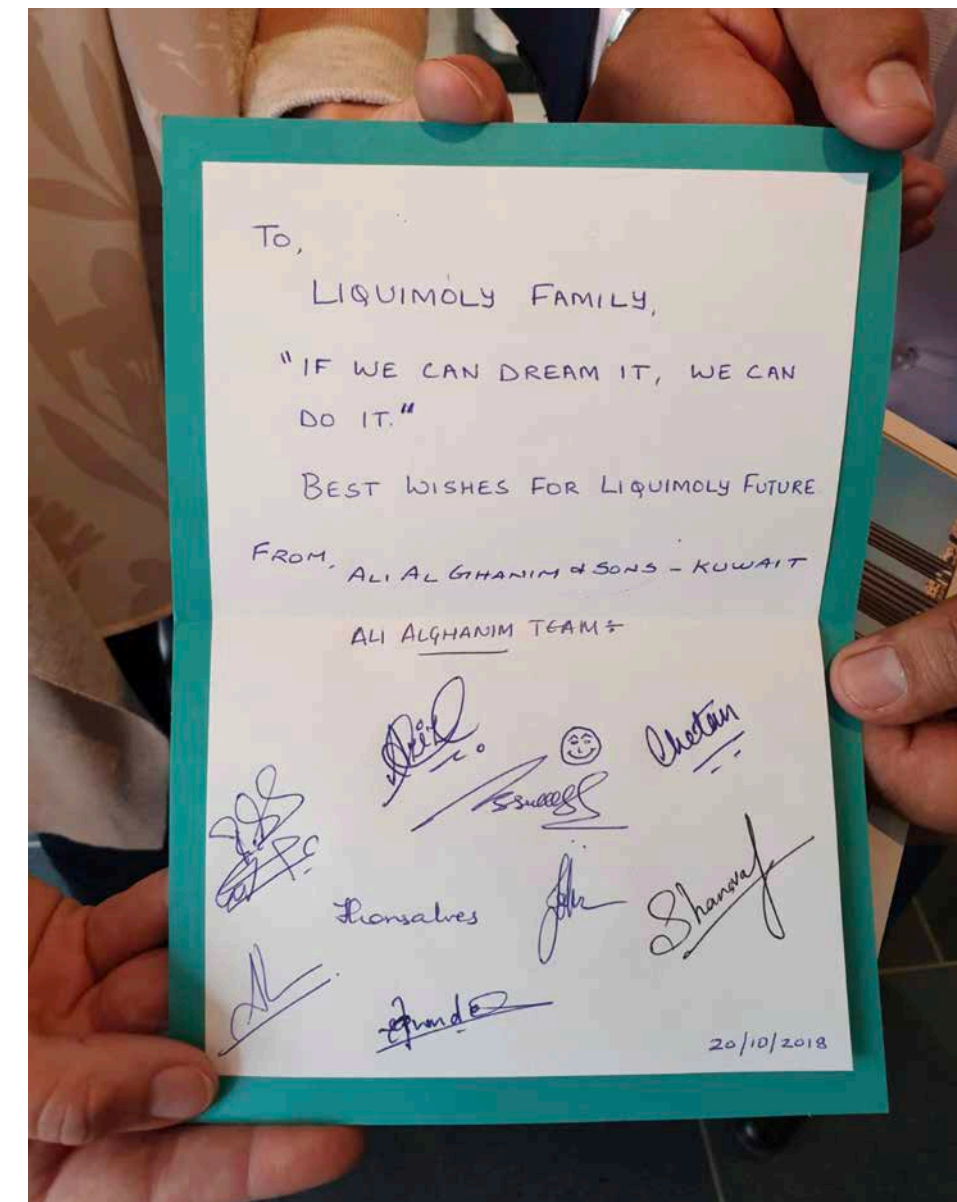 To,
LIQUIMOLY FAMILY,
"IF WE CAN DREAM IT, WE CAN
DO IT."
BEST WISHES FOR LIQUIMOLY FUTURE
FROM,
ALI AL GHANIM & SONS - KUWAIT
ALI ALGHANIM TEAM:
Chetan
Shanavaf
20/10/2018